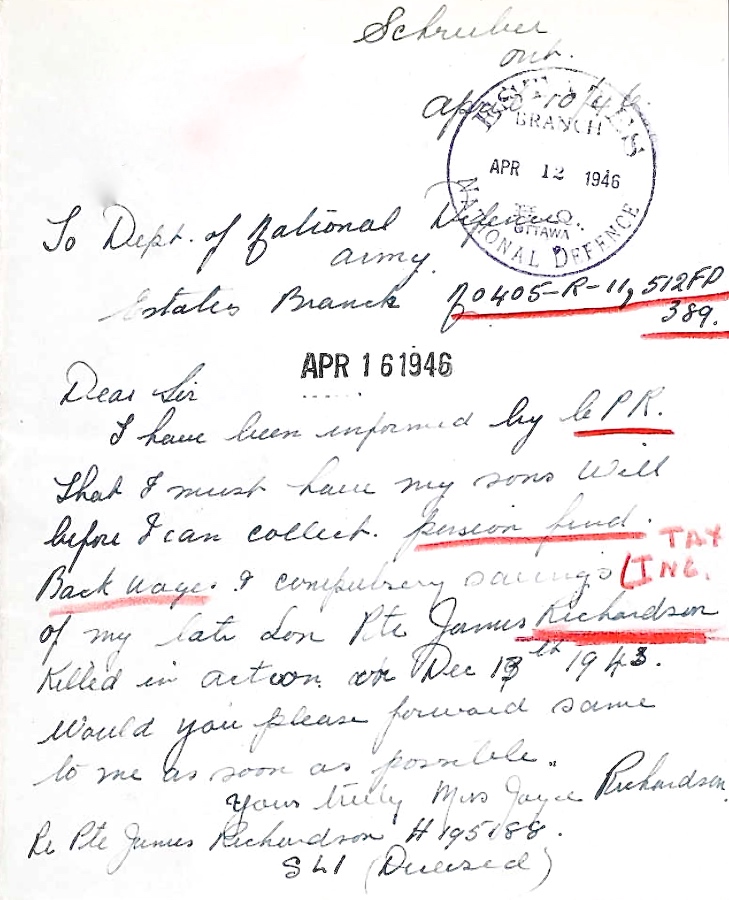 Schreiber
Ont.
April 10/46.
ESTATES
BRANCH
APR 12 1946
OTTAWA
NATIONAL DEFENCE
To Dept. of National Defence.
Army.
Estates Branch
405-R-11, 512FD
389.
APR 16 1946
Dear Sir
I have been informed by C PR.
that I must have my sons Will
before I can collect. pension fund.
TAX
Back wages & compulsery savings (INC.
of my late son Pte James Richardson
Killed in action on Dec 13th 1943.
Would you please forward same
to me as soon as possible.
Yours truly Mrs Joyce Richardson.
Re Pte James Richardson H 195188.
(Deceased)